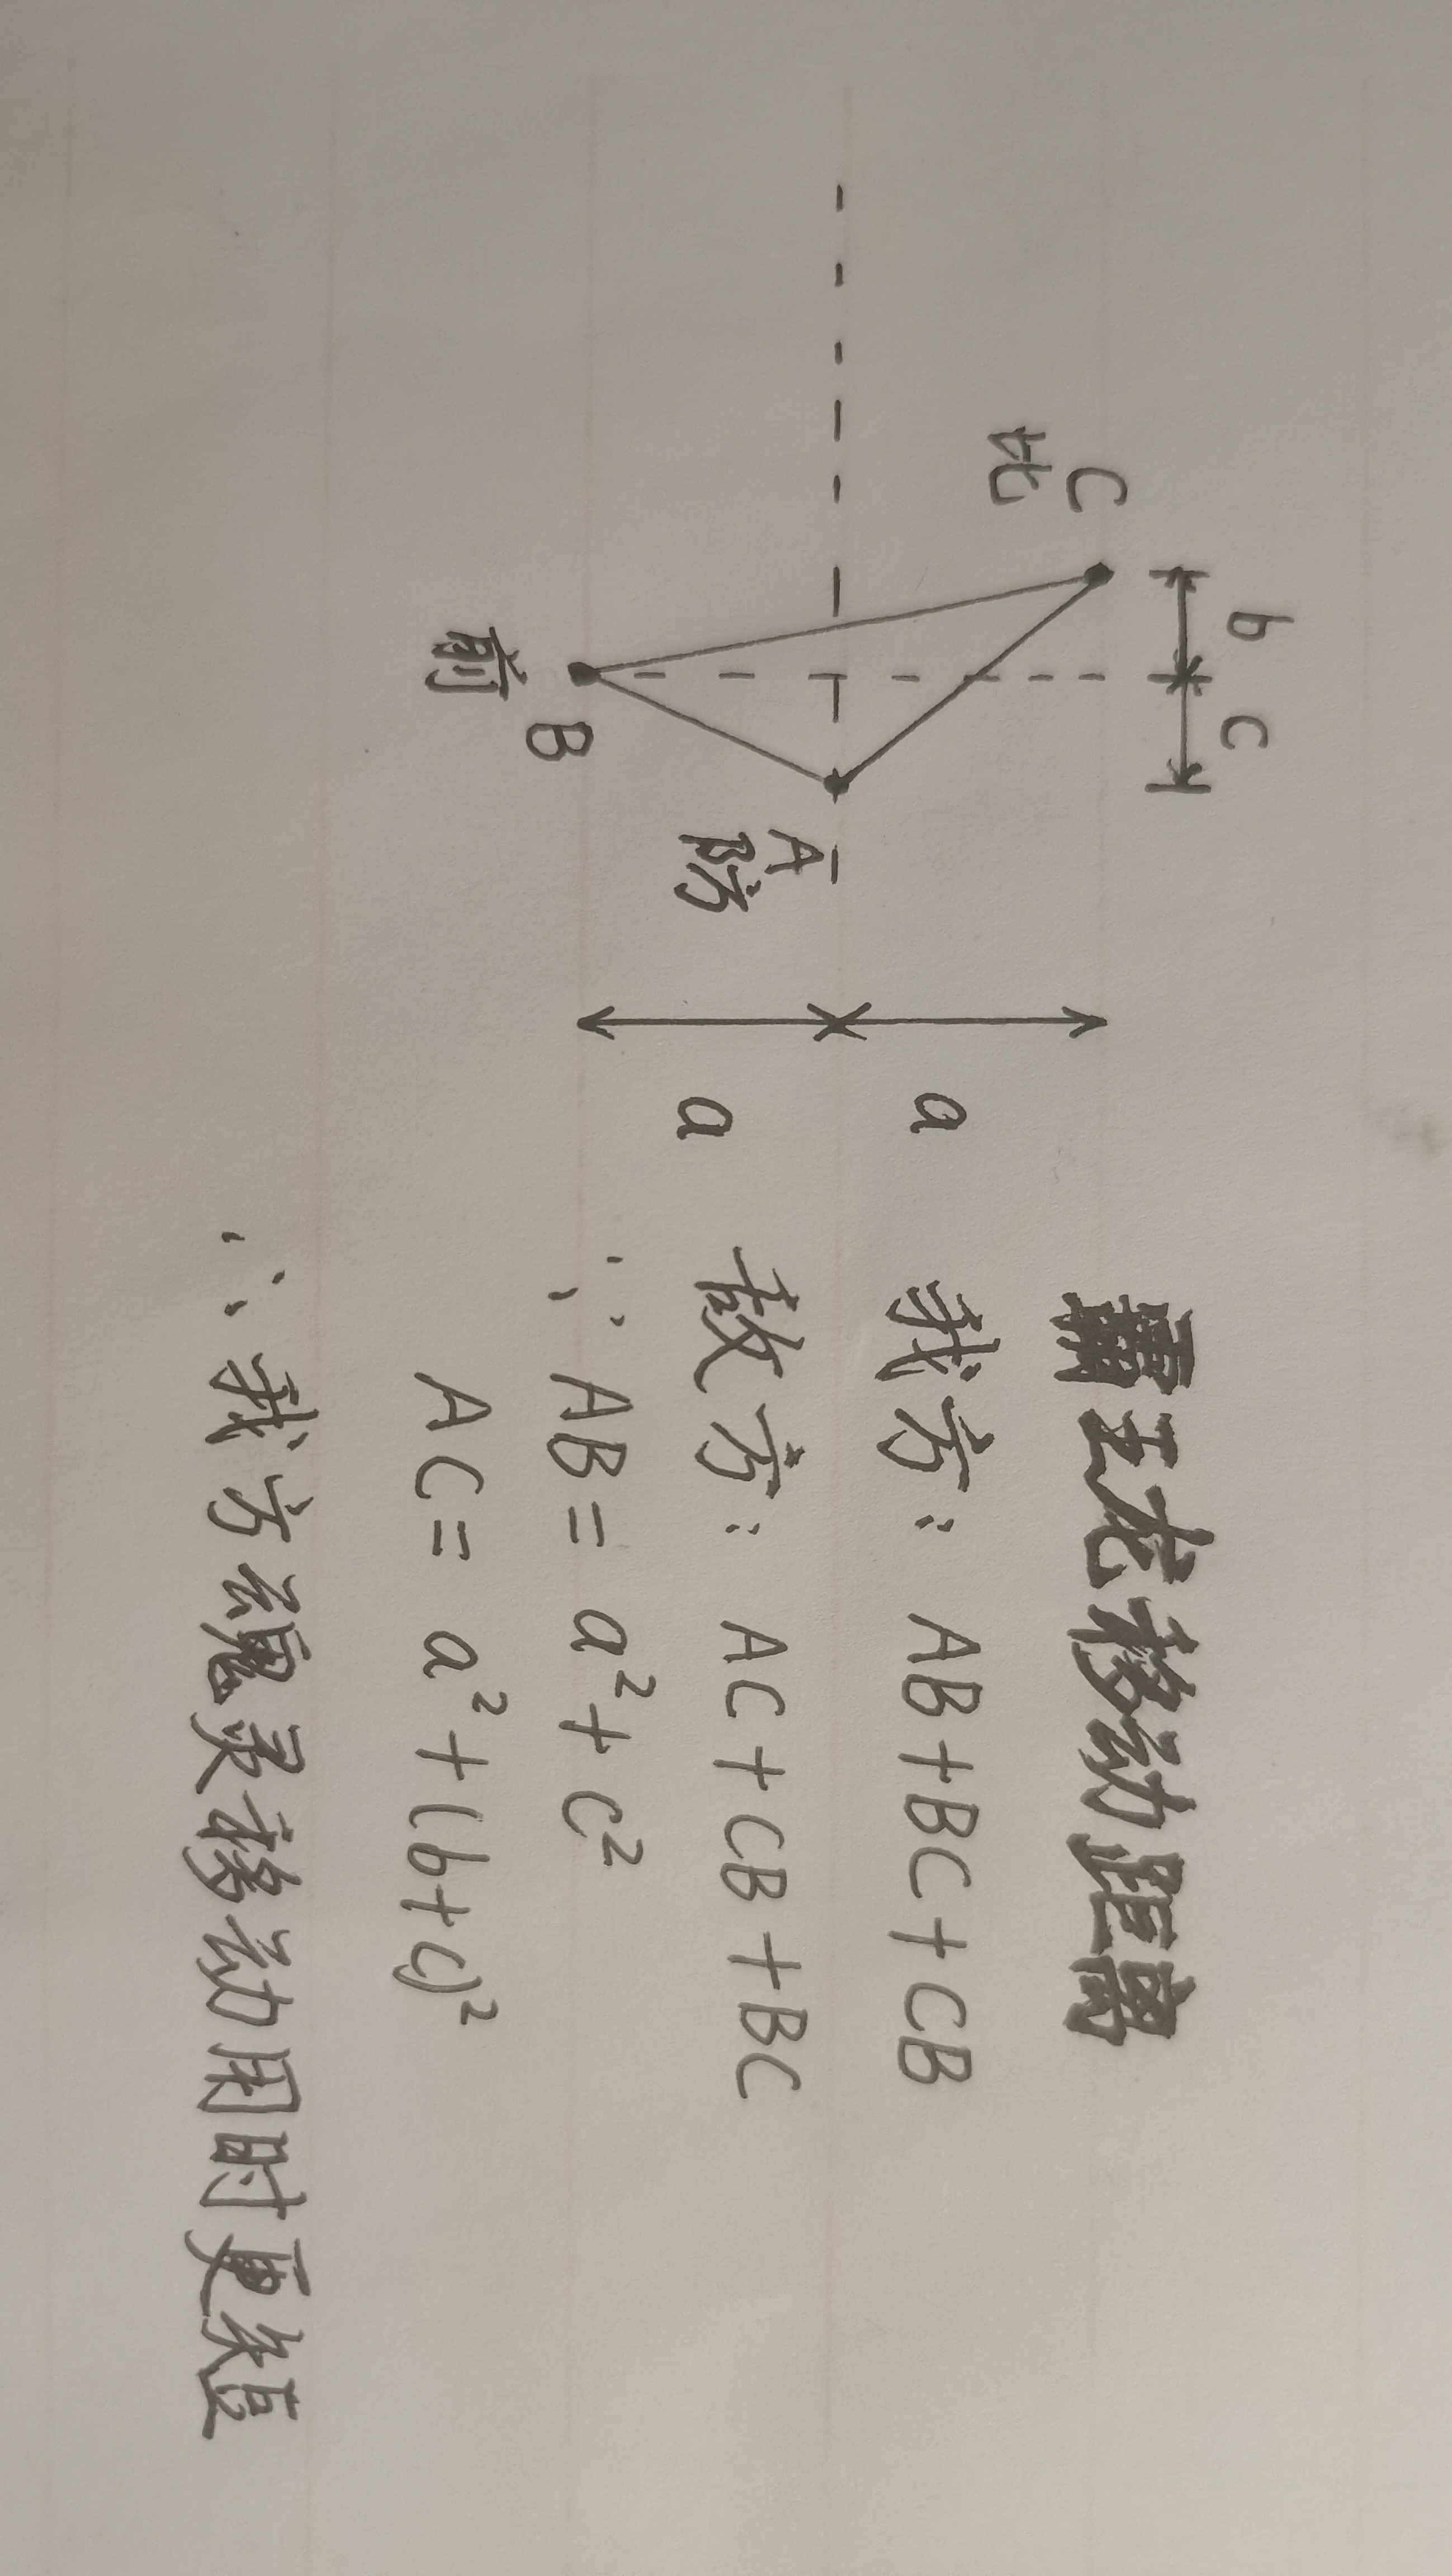 霸王龙移动距离
我方: AB+BC+CB
敌方: AC+CB+BC
∵ AB= a²+c²
AC= a²+(b+c)²
∴ 我方魂灵移动用时更短
b
c
C
B
前
A
防
a
a